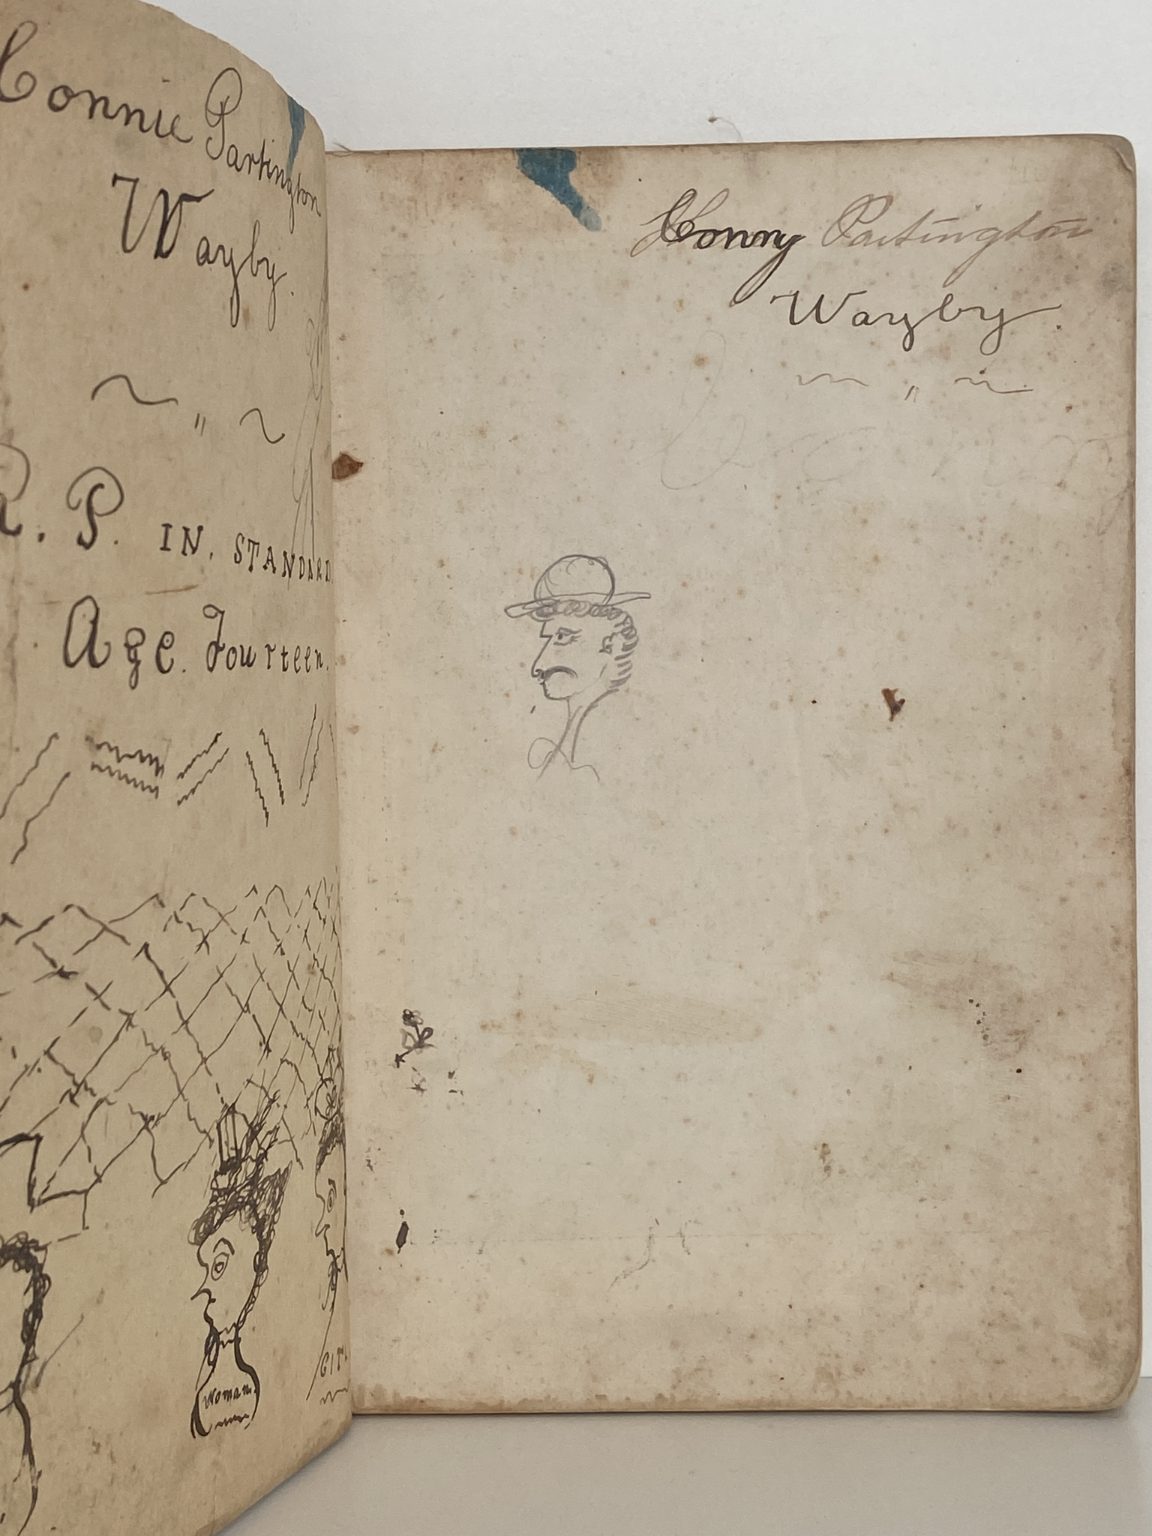 Connie Partington
Wayby.
R. P. IN. STANDARD
Age. Fourteen.
woman.
Conny Partington
Wayby.